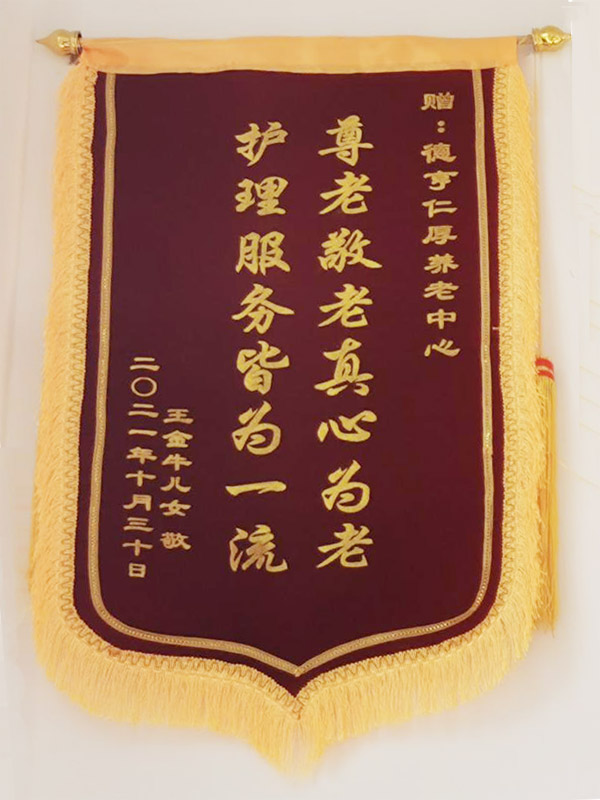 赠：德亨仁厚养老中心
尊老敬老真心为老
护理服务皆为一流
王金牛儿女 敬
二〇二一年十月三十日